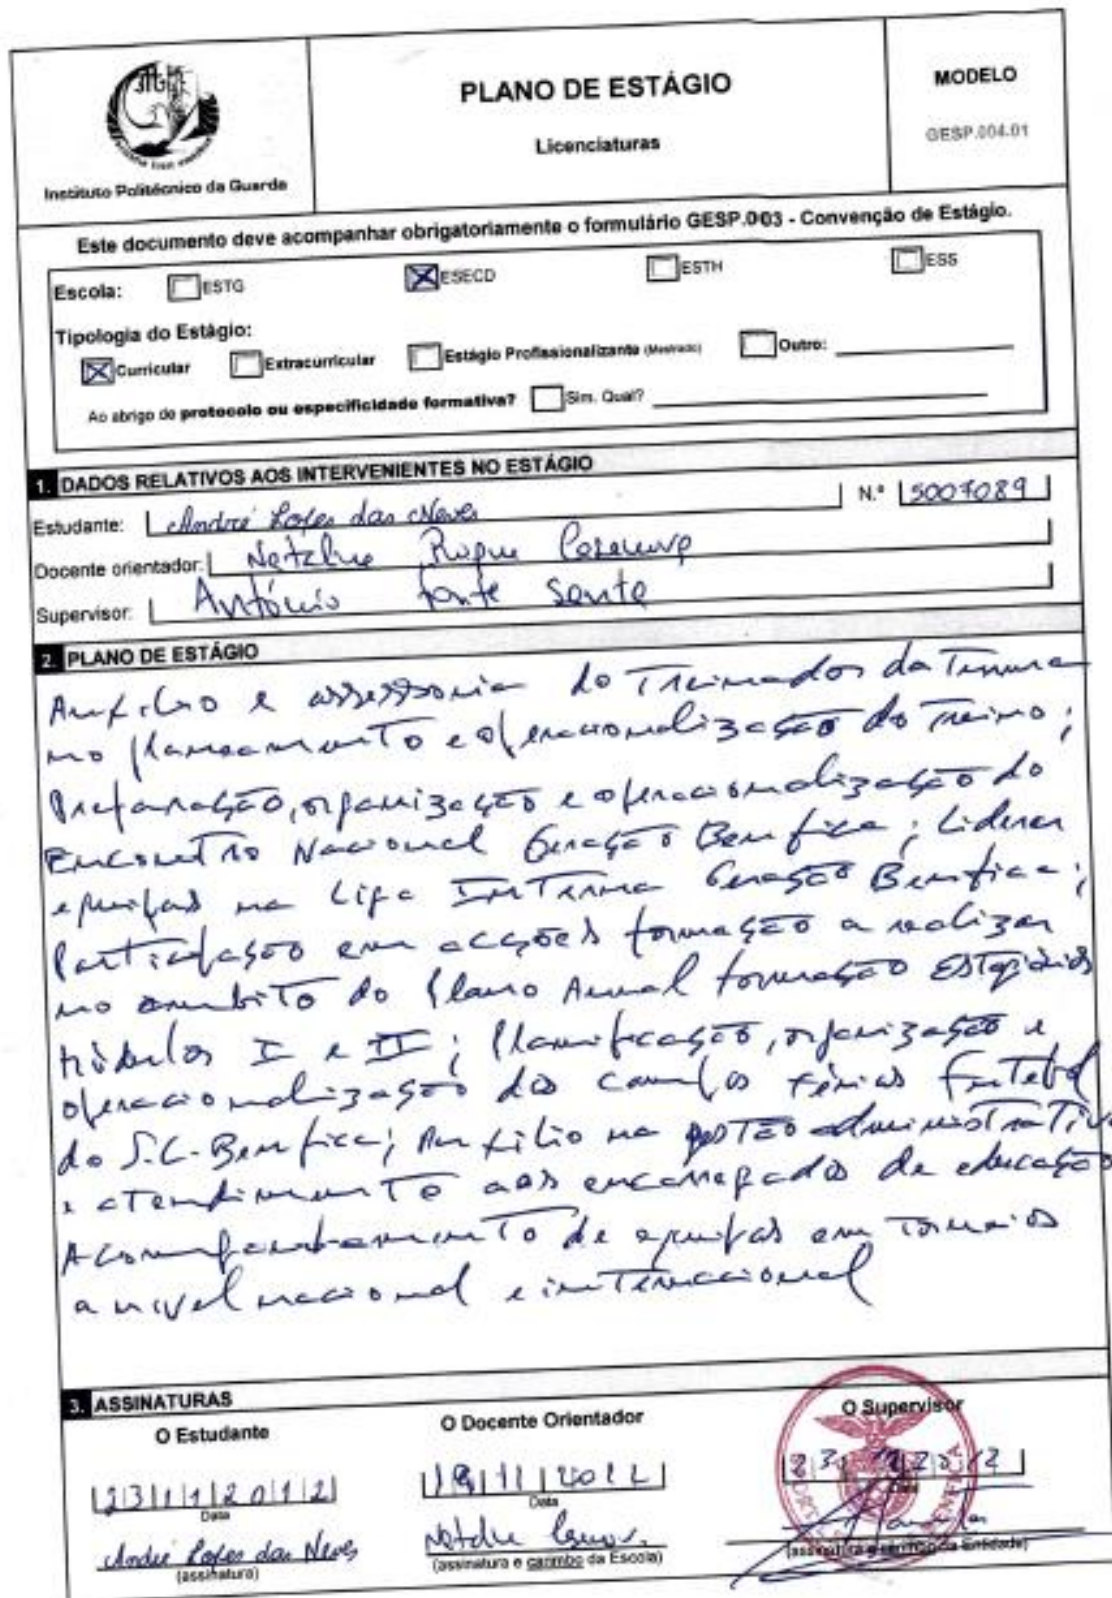 Instituto Politécnico da Guarda
PLANO DE ESTÁGIO
Licenciaturas
MODELO
GESP.004.01
Este documento deve acompanhar obrigatoriamente o formulário GESP.003 - Convenção de Estágio.
Escola: ESTG ESECD ESTH ESS
Tipologia do Estágio:
Curricular Extracurricular Estágio Profissionalizante (Mestrado) Outro:
Ao abrigo de protocolo ou especificidade formativa? Sim. Qual?
1. DADOS RELATIVOS AOS INTERVENIENTES NO ESTÁGIO
Estudante: André Lopes das Neves N.º 5007089
Docente orientador: Natalie Roque Casanova
Supervisor: António Fonte Santa
2. PLANO DE ESTÁGIO
Auxílio e assessoria do Treinador da Turma
no planeamento e operacionalização do Treino;
Preparação, organização e operacionalização do
Encontro Nacional Geração Benfica; Liderar
equipas na Liga Interna Geração Benfica;
Participação em acções formação a realizar
no âmbito do Plano Anual formação Estagiários
Módulos I e II; Planificação, organização e
operacionalização dos campos férias Futebol
do S.L. Benfica; Auxílio na gestão administrativa
e atendimento aos encarregados de educação
Acompanhamento de equipas em Torneios
a nível nacional e internacional
3. ASSINATURAS
O Estudante
O Docente Orientador
O Supervisor
23 11 2012
Data
André Lopes das Neves
(assinatura)
19 11 2012
Data
(assinatura e carimbo da Escola)
Data
(assinatura e carimbo da Entidade)
BENFICA